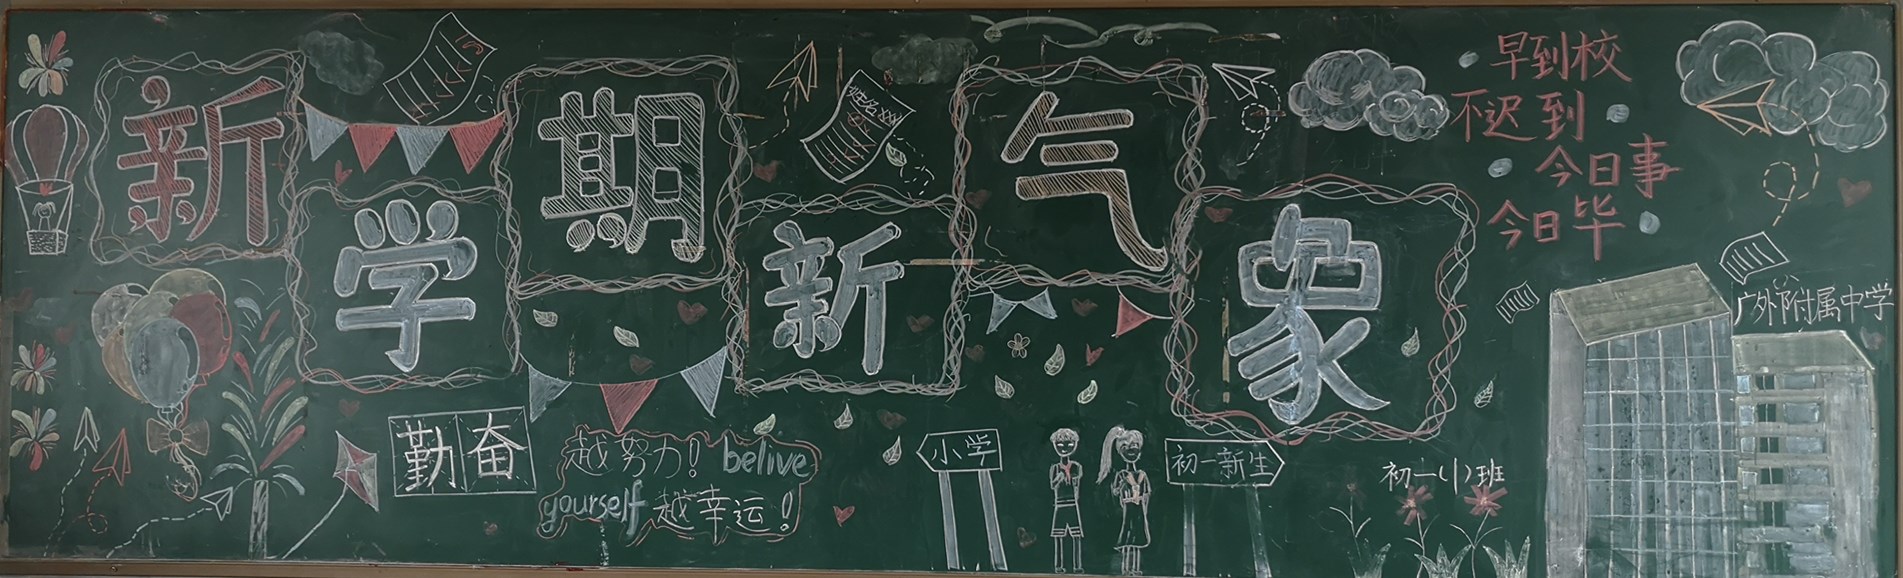 新学期新气象
姓名
早到校
不迟到
今日事
今日毕
广外附属中学
勤奋
越努力！belive
yourself 越幸运！
小学
初一新生
初一(1)班